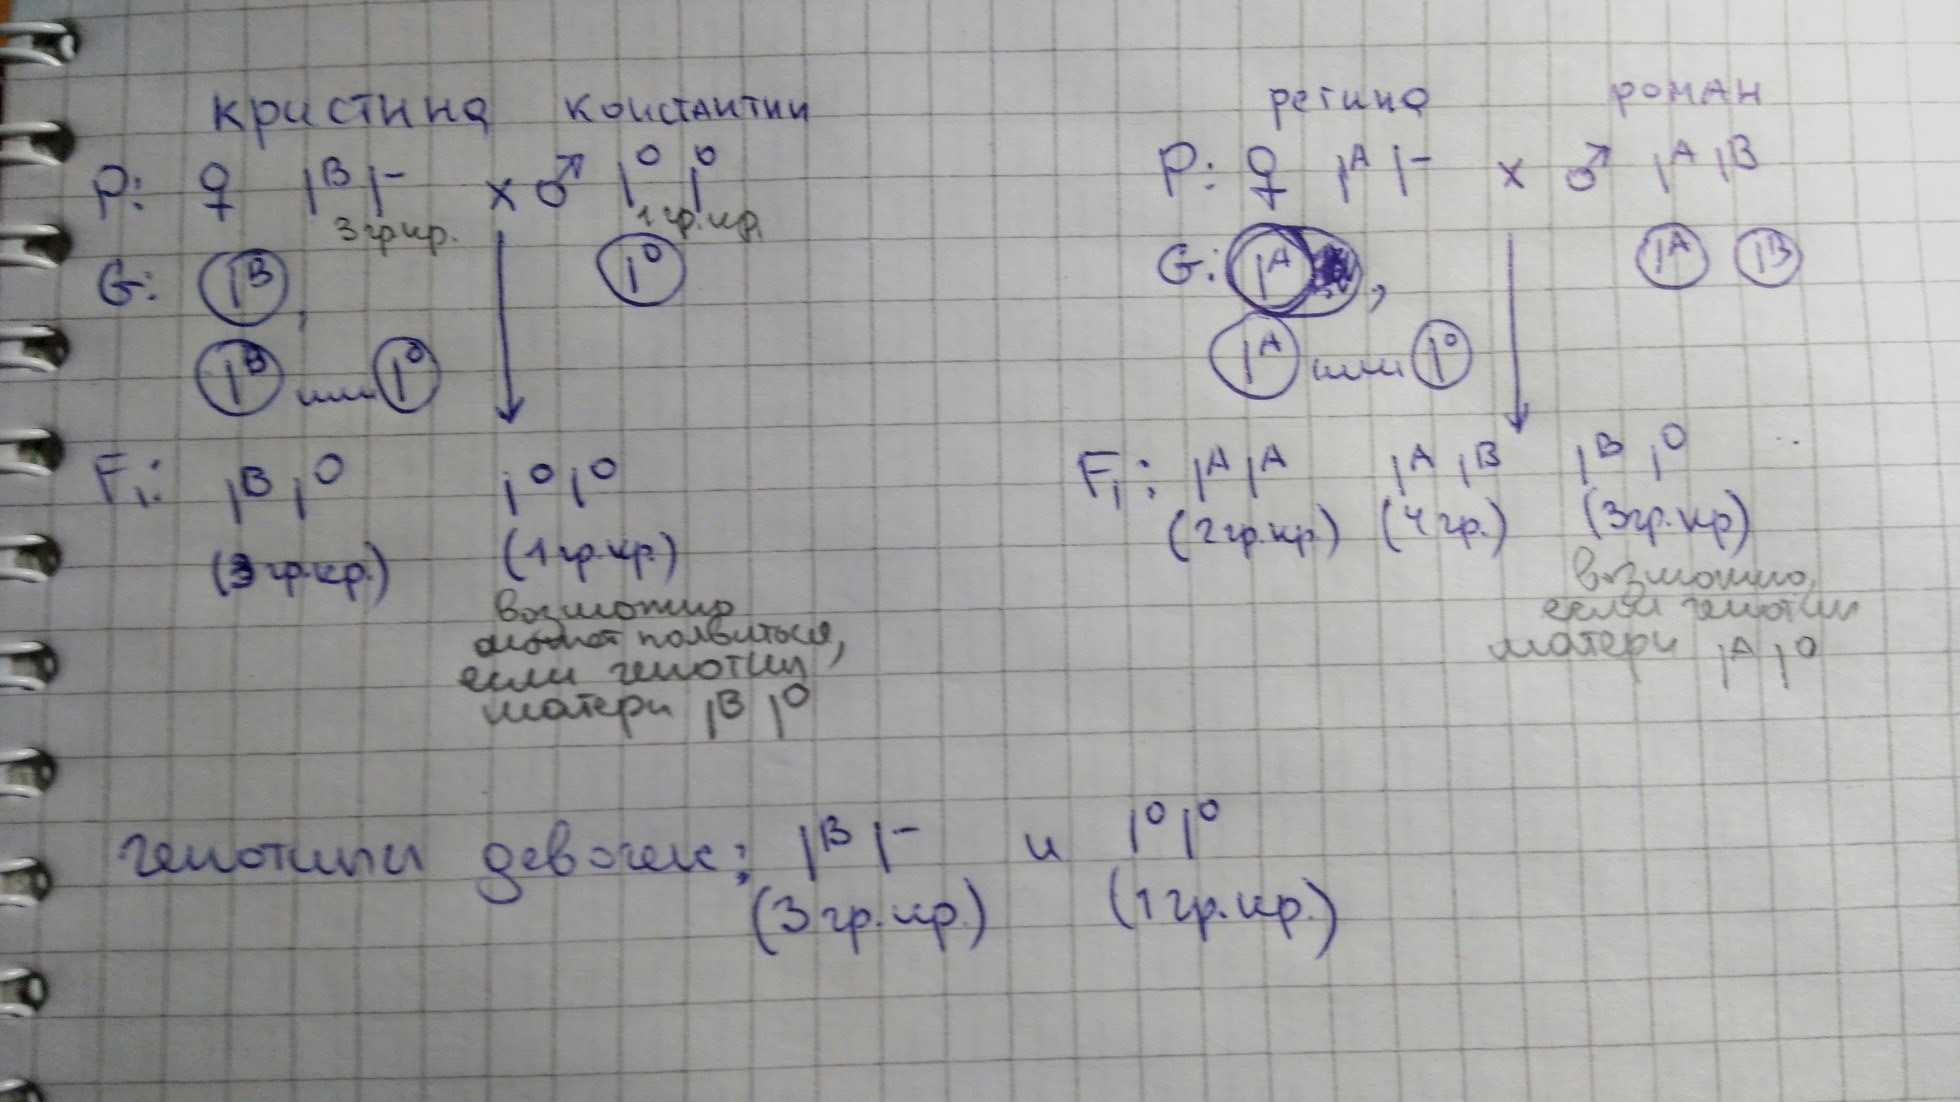 кристина константин
P: ♀ I^B I^- × ♂ I^O I^O
3 гр.кр. 1 гр.кр.
G: I^B, I^O
I^B или I^O
F₁: I^B I^O I^O I^O
(3 гр.кр.) (1 гр.кр.)
возможно
может появиться,
если генотип
матери I^B I^O
регина роман
P: ♀ I^A I^- × ♂ I^A I^B
G: I^A, I^A I^B
I^A или I^O
F₁: I^A I^A I^A I^B I^B I^O
(2 гр.кр.) (4 гр.) (3 гр.кр)
возможно,
если генотип
матери I^A I^O
генотипы девочек: I^B I^- и I^O I^O
(3 гр.кр.) (1 гр.кр.)